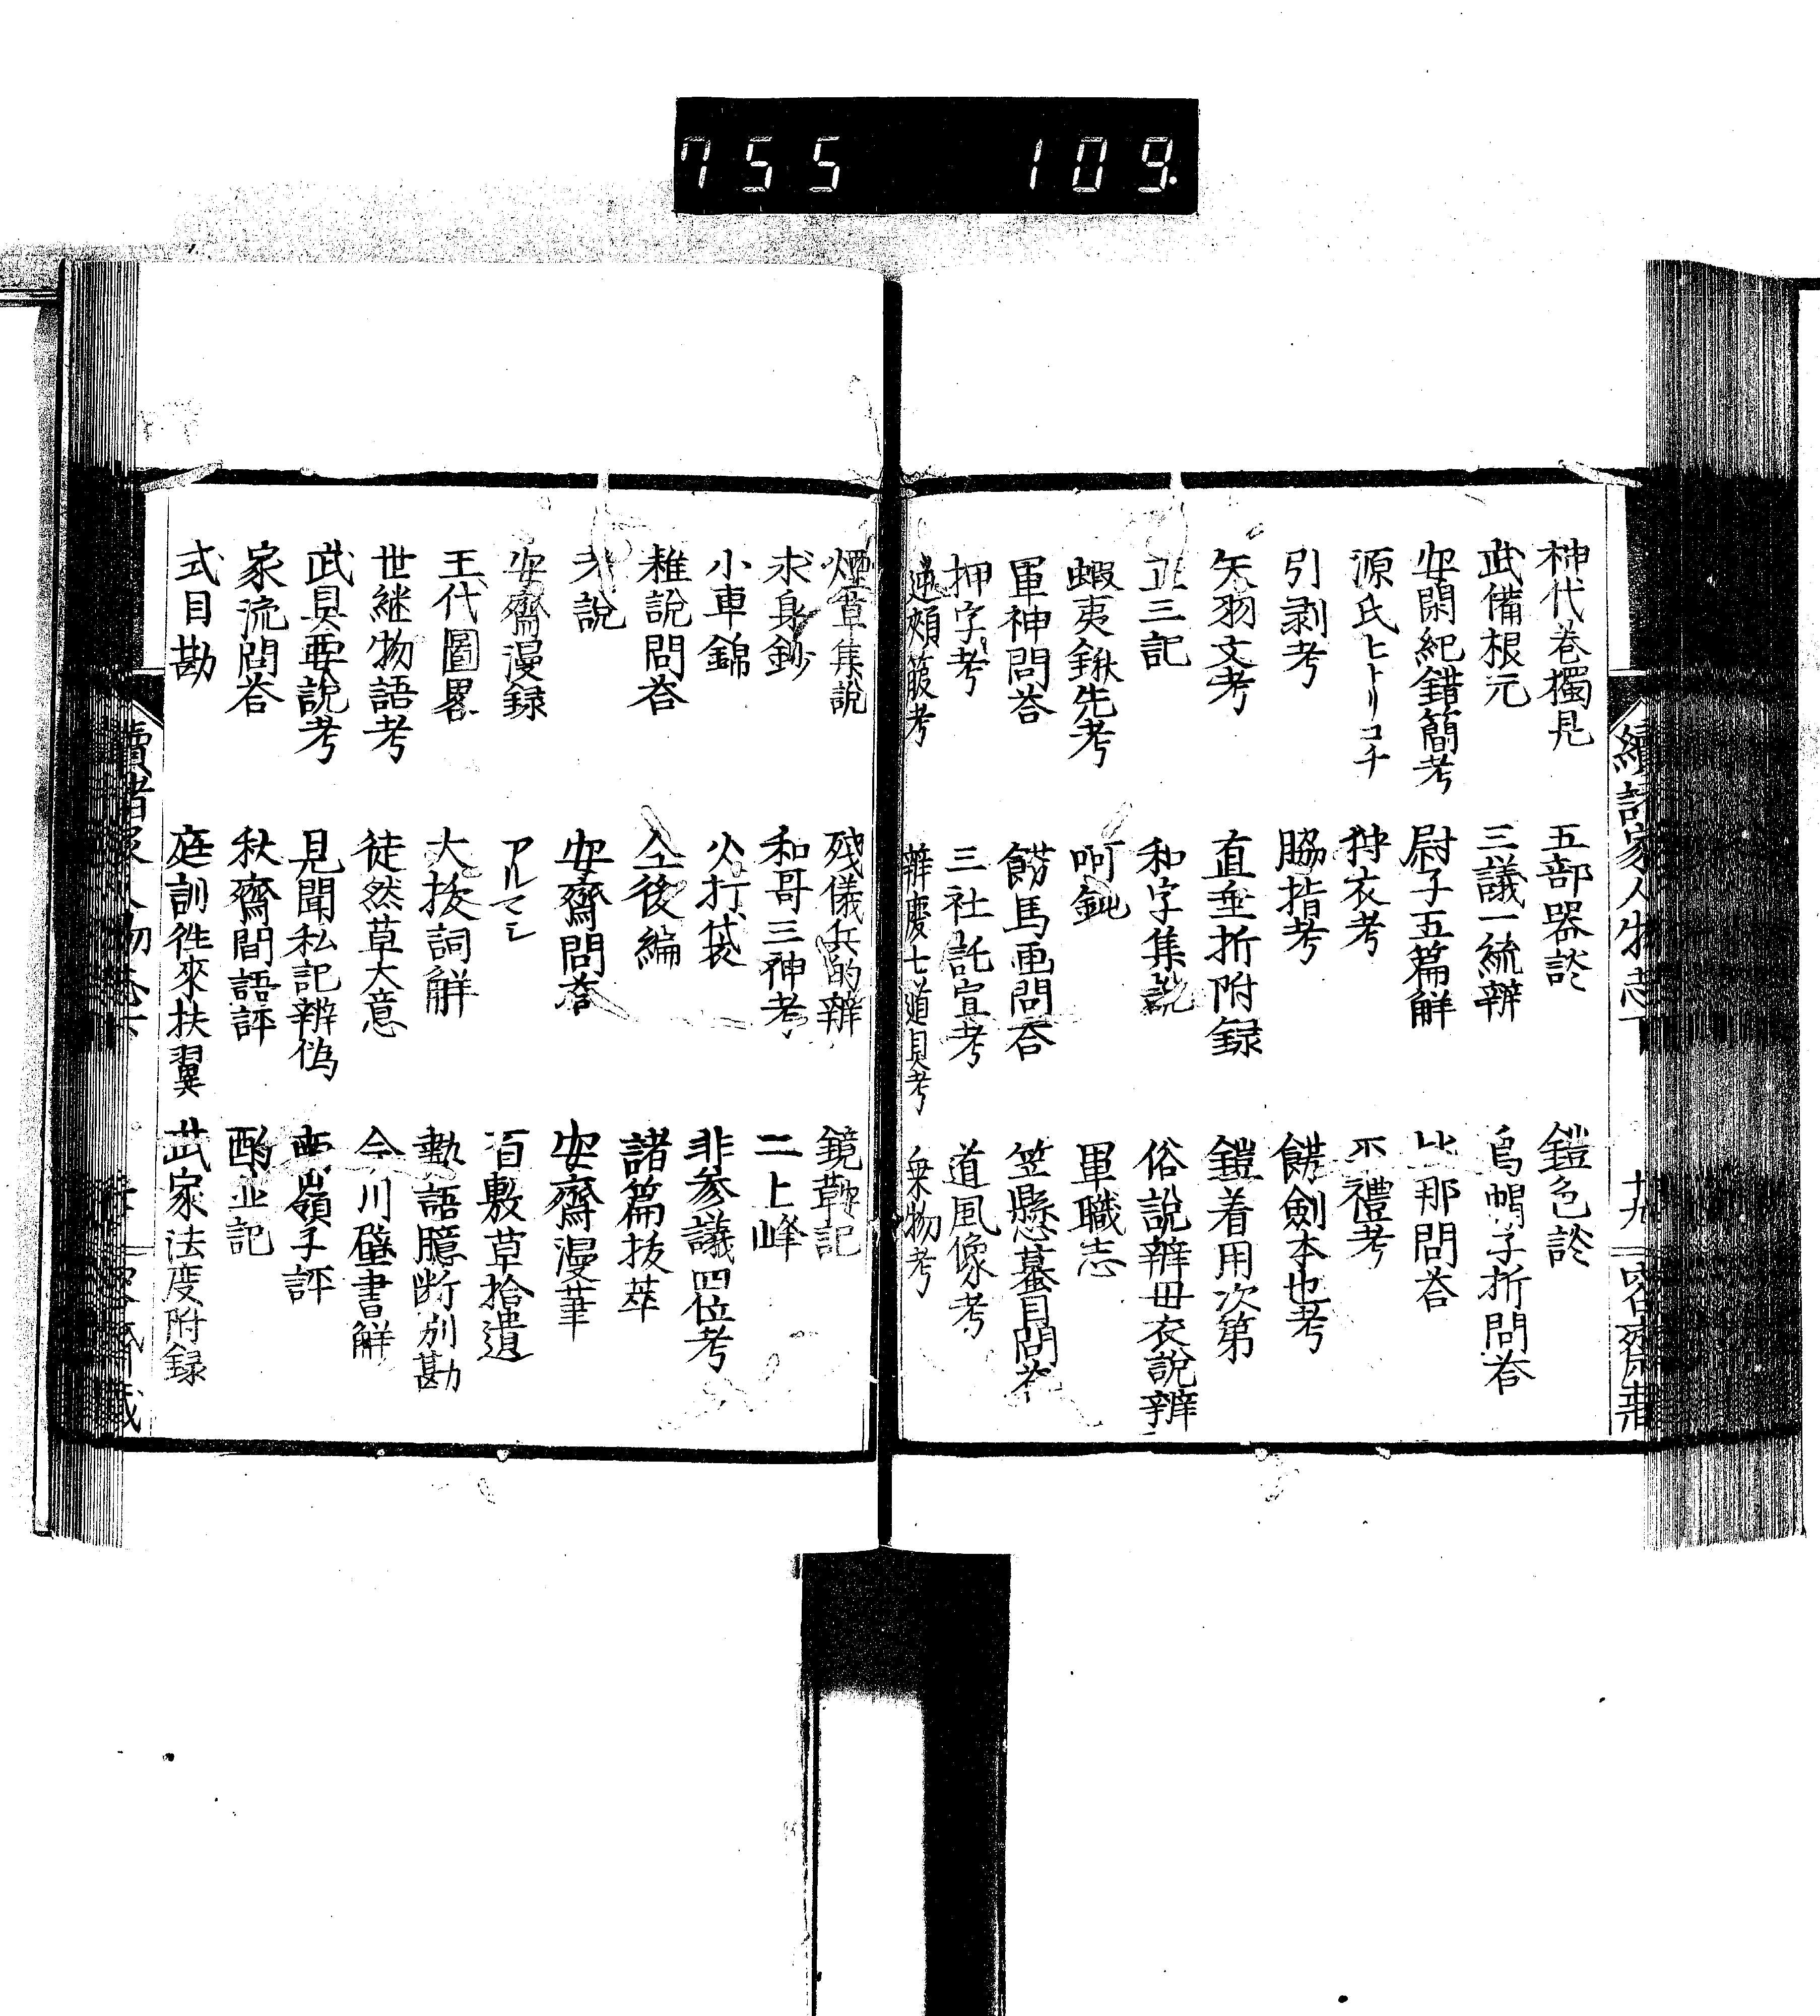 755 109
神代巻獨見 五部器談 鎧色談
武備根元 三議一統辨 烏帽子折問答
安閑紀錯簡考 尉子五篇解 比那問答
源氏ヒトリコチ 狩衣考 不禮考
引剥考 脇指考 餝劍本也考
矢羽文考 直垂折附録 鎧着用次第
立三記 和字集説 俗說辨毋衣說辨
蝦夷鍬先考 啊鈍 軍職志
軍神問答 餝馬画問答 笠懸蟇目問答
押字考 三社託宣考 道風像考
箙考 辨慶七道具考 乗物考
煙草集說 殘儀兵的辨 鏡鞍記
求身鈔 和哥三神考 二上峰
小車錦 火打袋 非参議四位考
雜說問答 仝後編 諸篇抜萃
説 安齋問答 安齋漫筆
安齋漫録 アルマシ 百敷草拾遺
王代圖畧 大祓詞解 勅語臆断別勘
世継物語考 徒然草大意 今川壁書解
武具要說考 見聞私記辨偽 嶺子評
家流問答 秋齋間語評 酌並記
式目勘 庭訓徃來扶翼 武家法度附録
續諸家人物志下 十九